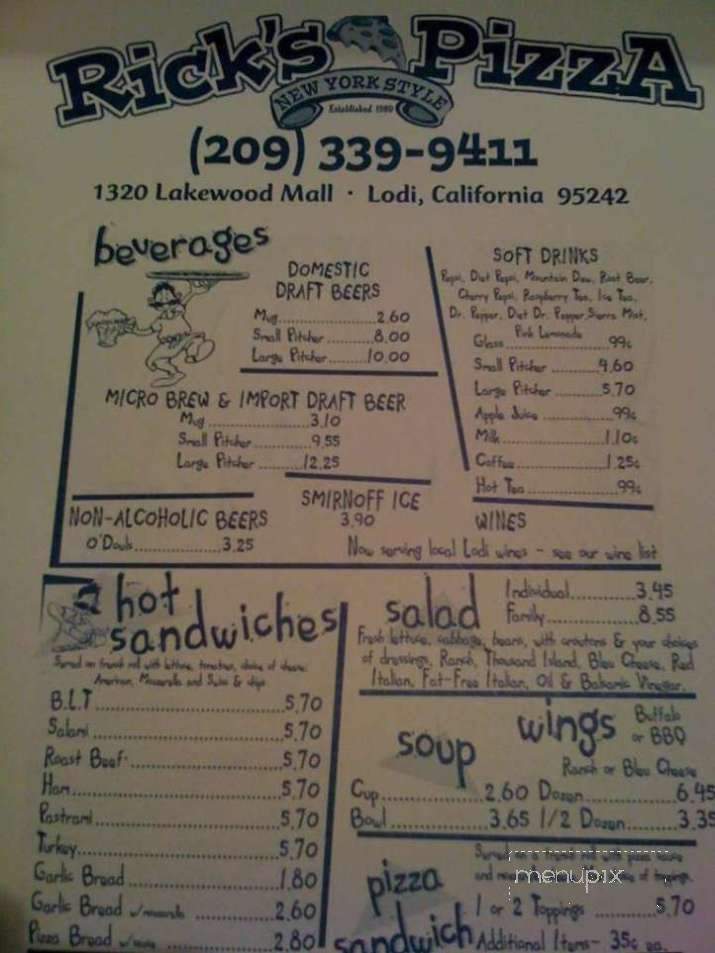 Rick's Pizza
NEW YORK STYLE
Established 1980
(209) 339-9411
1320 Lakewood Mall · Lodi, California 95242
beverages
DOMESTIC
DRAFT BEERS
Mug..................2.60
Small Pitcher........8.00
Large Pitcher.......10.00
MICRO BREW & IMPORT DRAFT BEER
Mug..................3.10
Small Pitcher........9.55
Large Pitcher.......12.25
NON-ALCOHOLIC BEERS
O'Douls..............3.25
SMIRNOFF ICE
3.90
SOFT DRINKS
Pepsi, Diet Pepsi, Mountain Dew, Root Beer,
Cherry Pepsi, Raspberry Tea, Ice Tea,
Dr. Pepper, Diet Dr. Pepper, Sierra Mist,
Pink Lemonade
Glass..................99¢
Small Pitcher.........4.60
Large Pitcher.........5.70
Apple Juice............99¢
Milk..................1.10¢
Coffee................1.25¢
Hot Tea................99¢
WINES
Now serving local Lodi wines - see our wine list
hot
sandwiches
Served on french roll with lettuce, tomatoes, choice of cheese:
American, Mozzarella and Swiss & chips
B.L.T..................5.70
Salami.................5.70
Roast Beef.............5.70
Ham....................5.70
Pastrami...............5.70
Turkey.................5.70
Garlic Bread...........1.80
Garlic Bread w/mozzarella ..........2.60
Pizza Bread ..........2.80
salad
Individual...........3.45
Family...............8.55
Fresh lettuce, cabbage, beans, with croutons & your choices
of dressings, Ranch, Thousand Island, Bleu Cheese, Red
Italian, Fat-Free Italian, Oil & Balsamic Vinegar.
soup
Cup..................2.60
Bowl.................3.65
wings
Buffalo
or BBQ
Ranch or Bleu Cheese
Dozen................6.45
1/2 Dozen............3.35
pizza
sandwich
Served on a french roll with pizza sauce
and of toppings.
1 or 2 Toppings ..........5.70
Additional Items- 35¢ ea.
menupix